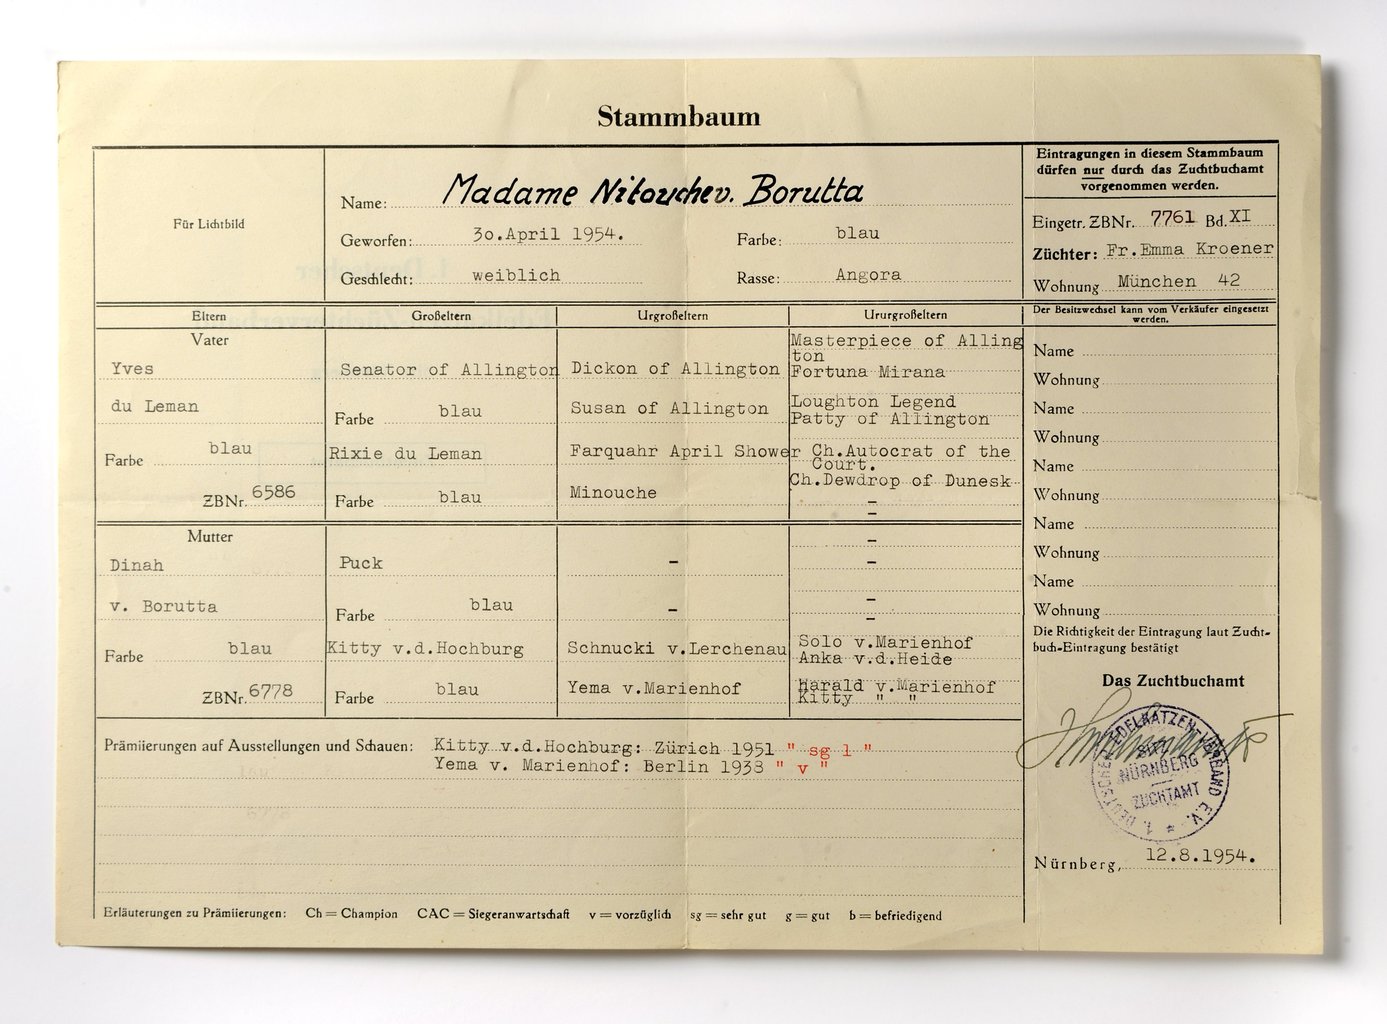 Stammbaum
Für Lichtbild
Name: Madame Nitouche v. Borutta
Geworfen: 30.April 1954. Farbe: blau
Geschlecht: weiblich Rasse: Angora
Eintragungen in diesem Stammbaum
dürfen nur durch das Zuchtbuchamt
vorgenommen werden.
Eingetr. ZBNr. 7761 Bd. XI
Züchter: Fr.Emma Kroener
Wohnung München 42
Eltern Großeltern Urgroßeltern Ururgroßeltern
Der Besitzwechsel kann vom Verkäufer eingesetzt
werden.
Vater
Yves
du Leman
Farbe blau
ZBNr. 6586
Senator of Allington
Farbe blau
Rixie du Leman
Farbe blau
Dickon of Allington
Susan of Allington
Farquahr April Shower
Minouche
Masterpiece of Alling
ton
Fortuna Mirana
Loughton Legend
Patty of Allington
Ch.Autocrat of the
Court.
Ch.Dewdrop of Dunesk
-
-
Mutter
Dinah
v. Borutta
Farbe blau
ZBNr. 6778
Puck
Farbe blau
Kitty v.d.Hochburg
Farbe blau
-
-
Schnucki v.Lerchenau
Yema v.Marienhof
-
-
-
-
Solo v.Marienhof
Anka v.d.Heide
Harald v.Marienhof
Kitty " "
Name
Wohnung
Name
Wohnung
Name
Wohnung
Name
Wohnung
Name
Wohnung
Die Richtigkeit der Eintragung laut Zucht-
buch-Eintragung bestätigt
Das Zuchtbuchamt
1. DEUTSCHER EDELKATZEN VERBAND E.V.
NÜRNBERG
ZUCHTAMT
Nürnberg, 12.8.1954.
Prämiierungen auf Ausstellungen und Schauen: Kitty v.d.Hochburg: Zürich 1951 " sg 1 "
Yema v. Marienhof: Berlin 1938 " v "
Erläuterungen zu Prämiierungen: Ch = Champion CAC = Siegeranwartschaft v = vorzüglich sg = sehr gut g = gut b = befriedigend